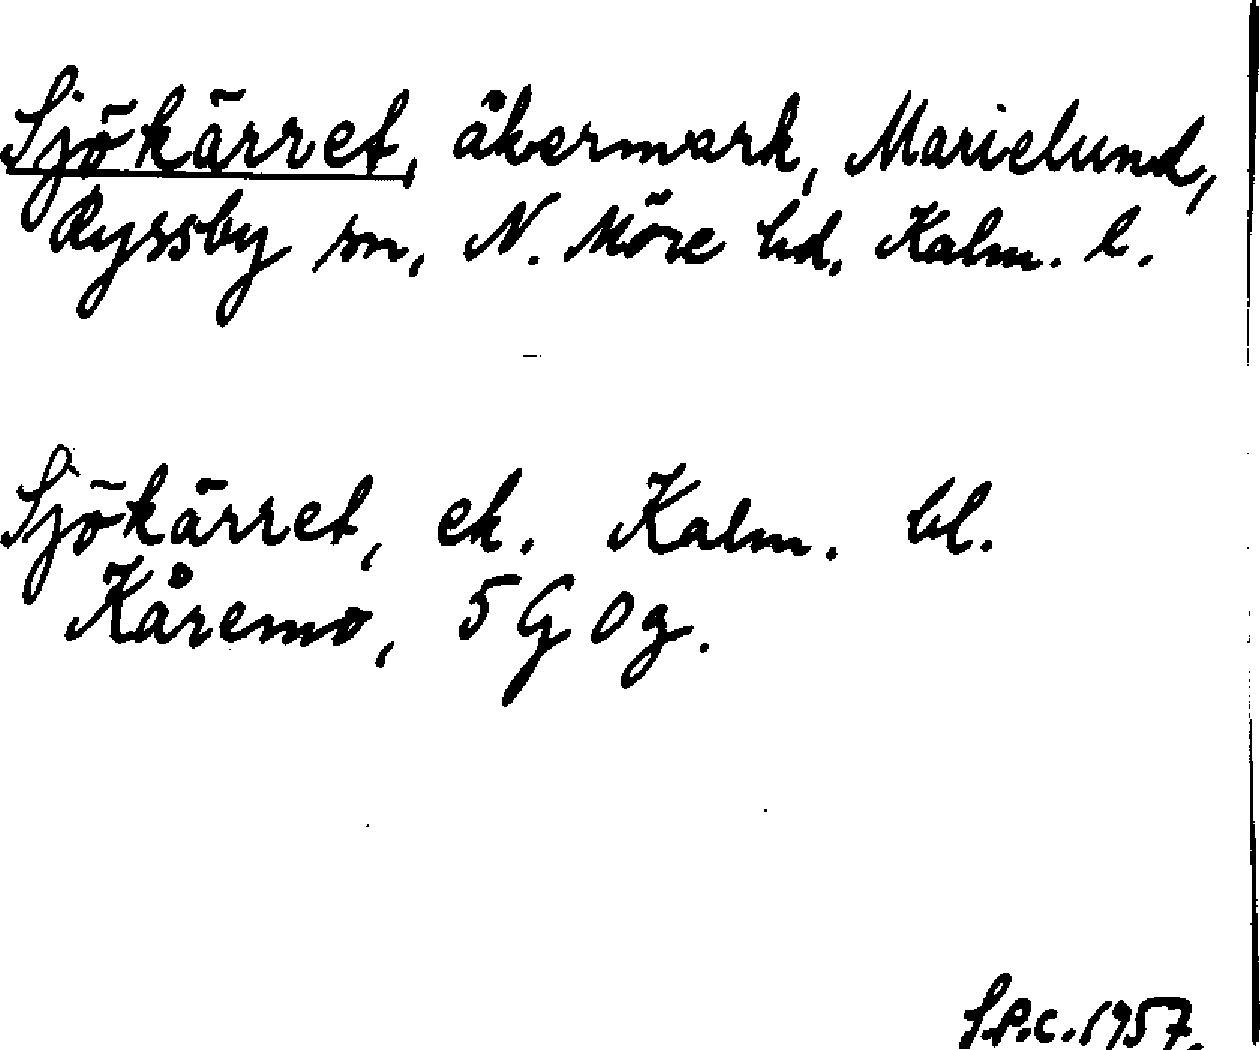 Sjökärret, åkermark, Marielund,
Ryssby sn, N. Möre hd. Kalm. l.
Sjökärret, ek. Kalm. bl.
Kåremo, 5 G 0 g.
S.P.C. 1957.